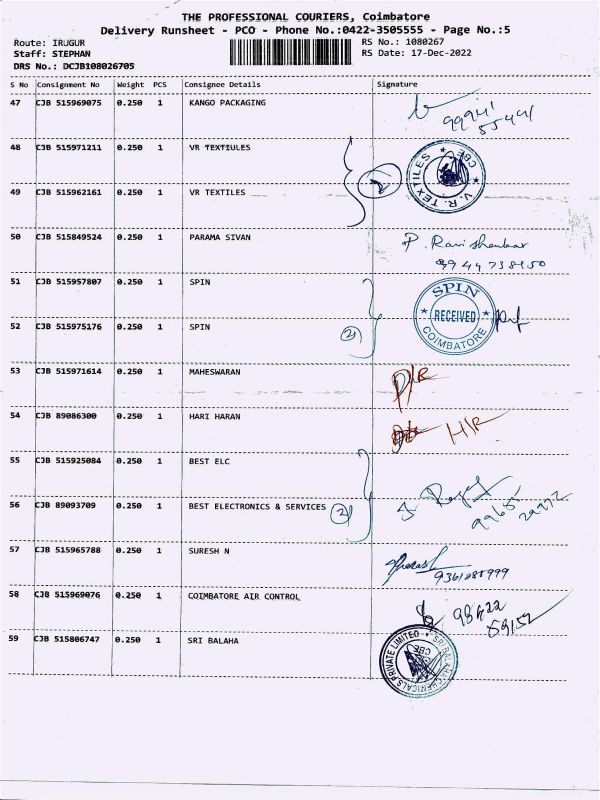 THE PROFESSIONAL COURIERS, Coimbatore
Delivery Runsheet - PCO - Phone No.:0422-3505555 - Page No.:5
Route: IRUGUR RS No.: 1080267
Staff: STEPHAN RS Date: 17-Dec-2022
DRS No.: DCJB108026705
S No Consignment No Weight PCS Consignee Details Signature
47 CJB 515969075 0.250 1 KANGO PACKAGING
99941
55441
48 CJB 515971211 0.250 1 VR TEXTIULES
V. R. TEXTILES CBE
2
49 CJB 515962161 0.250 1 VR TEXTILES
50 CJB 515849524 0.250 1 PARAMA SIVAN P. Ravi Shankar
9944738450
51 CJB 515957807 0.250 1 SPIN
SPIN
RECEIVED
COIMBATORE
52 CJB 515975176 0.250 1 SPIN 2
53 CJB 515971614 0.250 1 MAHESWARAN D/R
54 CJB 89086300 0.250 1 HARI HARAN H/R
55 CJB 515925084 0.250 1 BEST ELC
56 CJB 89093709 0.250 1 BEST ELECTRONICS & SERVICES 2
57 CJB 515965788 0.250 1 SURESH N
9361088999
58 CJB 515969076 0.250 1 COIMBATORE AIR CONTROL
98422
59152
59 CJB 515806747 0.250 1 SRI BALAHA
SRI BALAHA CHEMICALS PRIVATE LIMITED CBE